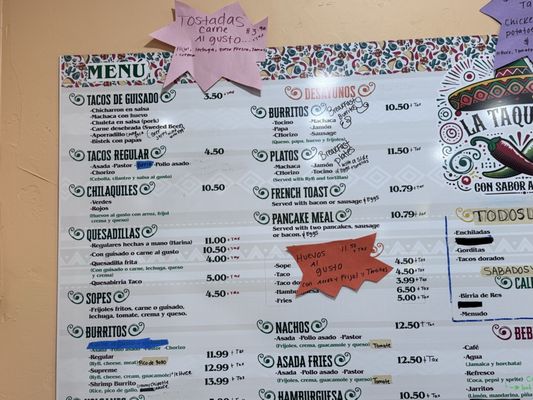 Tostadas
carne
Al gusto... $3.99
MENU
TACOS DE GUISADO 3.50 + Tax
-Chicharron en salsa
-Machaca con huevo
-Chuleta en salsa (pork)
-Carne desebrada (Sweded Beef)
-Aporreadillo
-Bistek con papas
TACOS REGULAR 4.50
-Asada -Pastor -Pollo asado
-Chorizo
(Cebolla, cilantro y salsa al gusto)
CHILAQUILES 10.50
-Verdes
-Rojos
(Huevos al gusto con arroz, frijol
crema y queso)
QUESADILLAS
-Regulares hechas a mano (Harina) 11.00 + Tax
-Con guisado o carne al gusto 10.50 + Tax
-Quesadilla frita 4.00 + Tax
(Con guisado o carne, lechuga, queso
y crema)
Quesabirria Taco 5.00 + Tax
SOPES 4.50 + Tax
-Frijoles fritos, carne o guisado,
lechuga, tomate, crema y queso.
BURRITOS
-Asada -Pollo asado -Pastor -Chorizo
-Regular 11.99 + Tax
(Ryfi, cheese, meat) Pico de gallo
-Supreme 12.99 + Tax
(Ryfi, cheese, cream, guacamole)
-Shrimp Burrito 13.99 + Tax
(Rice, pico de gallo,
DESAYUNOS
BURRITOS Breakfast 10.50 + Tax
-Tocino -Machaca
-Papa -Jamón
-Chorizo -Sausage
(Queso, papa, huevo y frijoles)
PLATOS Breakfast Plates 11.50 + Tax
-Machaca -Tocino
-Jamón -Chorizo
(Served with Ryfi and tortillas)
FRENCH TOAST 10.79 + Tax
Served with bacon or sausage & Eggs
PANCAKE MEAL 10.79 + Tax
Served with two pancakes, sausage
or bacon. & Eggs
Huevos 11.50 + Tax
Al
gusto
con Arroz y Frijol y Tortillas
-Sope 4.50 + Tax
-Taco 4.50 + Tax
-Taco 3.99 + Tax
6.50 + Tax
-Fries 5.00 + Tax
NACHOS 12.50 + Tax
-Asada -Pollo asado -Pastor
(Frijoles, crema, guacamole y queso) Tomate
ASADA FRIES 12.50 + Tax
-Asada -Pollo asado -Pastor
(Frijoles, crema, guacamole y queso) Tomate
HAMBURGUESA 10.50 + Tax
Chicken
potatoes
LA TAQU
CON SABOR A
TODOS L
-Enchiladas
-Gorditas
-Tacos dorados
SABADOS Y
CALI
-Birria de Res
-Menudo
BEB
-Café
-Agua
(Jamaica y horchata)
-Refresco
(Coca, pepsi y sprite)
-Jarritos
(Limón, mandarina, piña